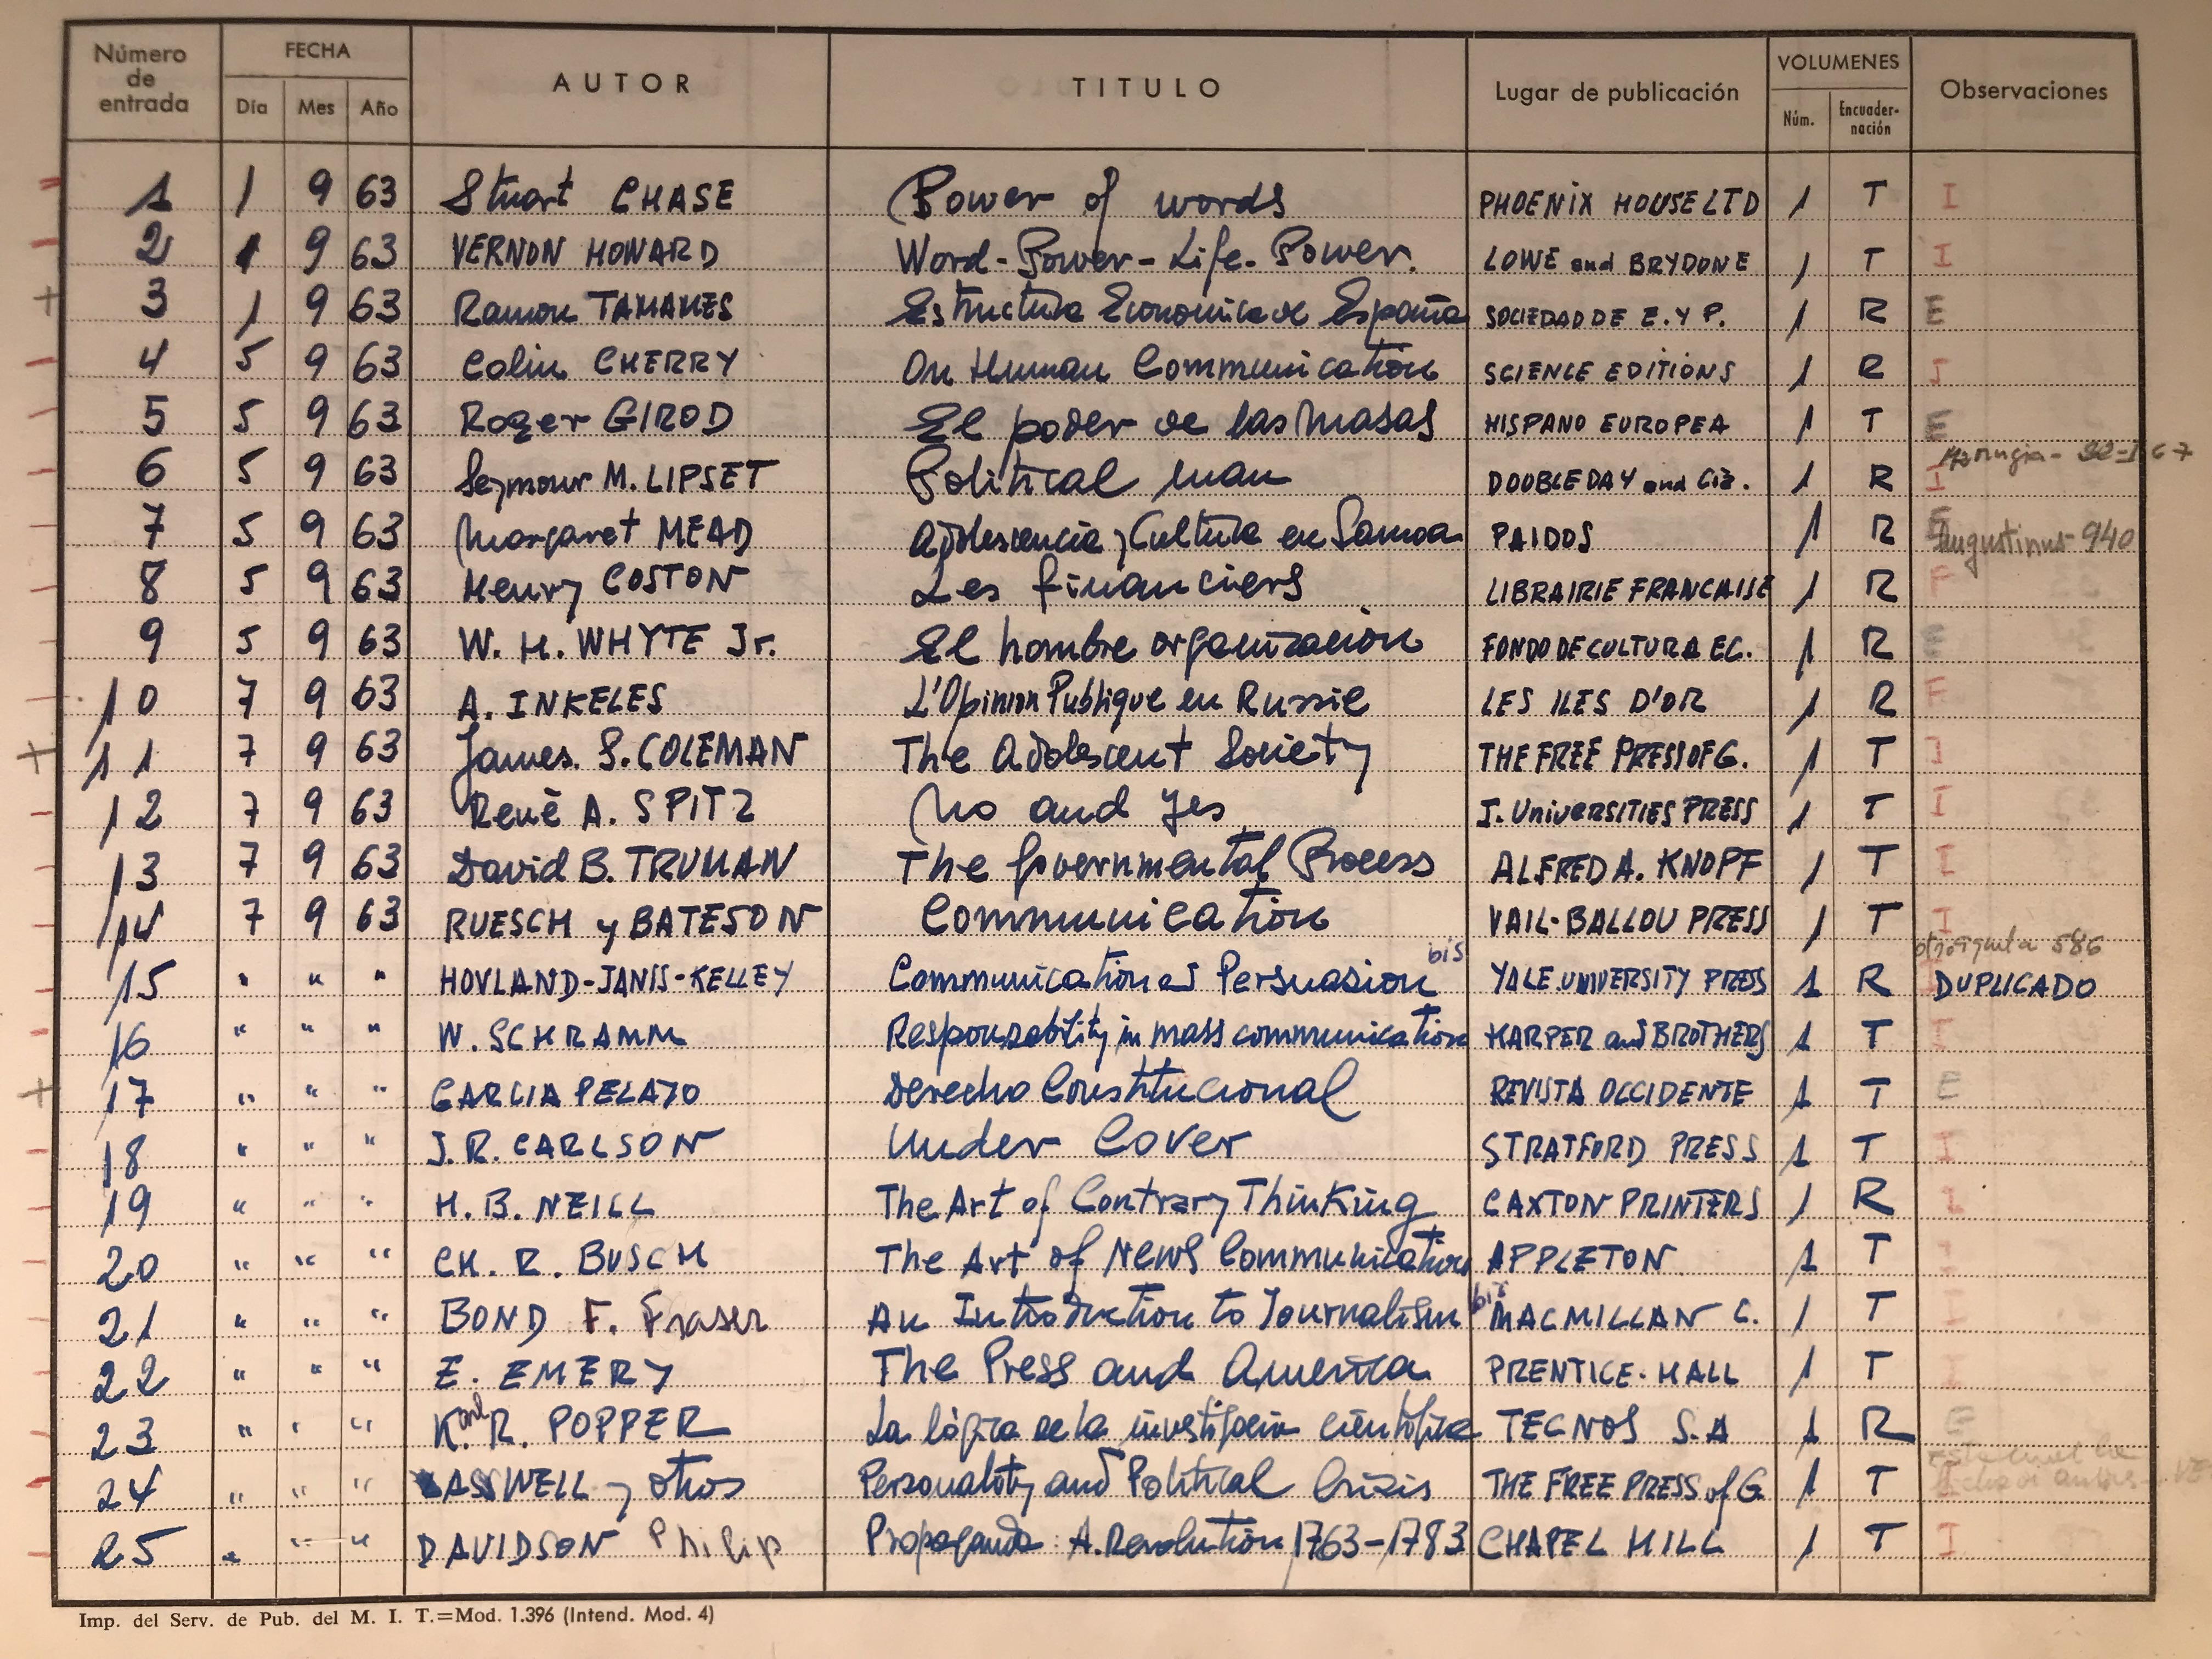 Número de entrada FECHA Día Mes Año AUTOR TITULO Lugar de publicación VOLUMENES Núm. Encuader-nación Observaciones
1 1 9 63 Stuart CHASE Power of words PHOENIX HOUSE LTD 1 T I
2 1 9 63 VERNON HOWARD Word-Power-Life-Power. LOWE and BRYDONE 1 T I
3 1 9 63 Ramon TAMAMES Estructura Economica de España SOCIEDAD DE E. Y P. 1 R E
4 5 9 63 Colin CHERRY On Human Communication SCIENCE EDITIONS 1 R I
5 5 9 63 Roger GIROD El poder de las Masas HISPANO EUROPEA 1 T E
6 5 9 63 Seymour M. LIPSET Political man DOUBLEDAY and Cia. 1 R I
7 5 9 63 Margaret MEAD Adolescencia y Cultura en Samoa PAIDOS 1 R E Augustinus-940
8 5 9 63 Henry COSTON Les financiers LIBRAIRIE FRANCAISE 1 R F
9 5 9 63 W. H. WHYTE Jr. El hombre organizacion FONDO DE CULTURA EC. 1 R E
10 7 9 63 A. INKELES L'Opinion Publique en Russie LES ILES D'OR 1 R F
11 7 9 63 James. S. COLEMAN The Adolescent Society THE FREE PRESS OF G. 1 T I
12 7 9 63 René A. SPITZ No and Yes I. UniversITIES PRESS 1 T I
13 7 9 63 David B. TRUMAN The Governmental Process ALFRED A. KNOPF 1 T I
14 7 9 63 RUESCH y BATESON Communication VAIL-BALLOU PRESS 1 T I
15 " " " HOVLAND-JANIS-KELLEY Communication and Persuasion bis YALE.UNIVERSITY PRESS 1 R 586 DUPLICADO
16 " " " W. SCHRAMM Responsability in mass communication HARPER and BROTHERS 1 T I
17 " " " GARCIA PELAYO Derecho Constitucional REVISTA OCCIDENTE 1 T E
18 " " " J.R. CARLSON Under Cover STRATFORD PRESS 1 T I
19 " " " H. B. NEILL The Art of Contrary Thinking CAXTON PRINTERS 1 R I
20 " " " CH. R. BUSCH The Art of News Communication APPLETON 1 T I
21 " " " BOND F. Fraser An Introduction to Journalism bis MACMILLAN C. 1 T I
22 " " " E. EMERY The Press and America PRENTICE-HALL 1 T I
23 " " " Karl R. POPPER La lógica de la investigación cientifica TECNOS S.A 1 R E
24 " " " LASSWELL y otros Personality and Political Crisis THE FREE PRESS of G 1 T
25 " " " DAVIDSON Philip Propaganda: A. Revolution 1763-1783 CHAPEL HILL 1 T I
Imp. del Serv. de Pub. del M. I. T.=Mod. 1.396 (Intend. Mod. 4)